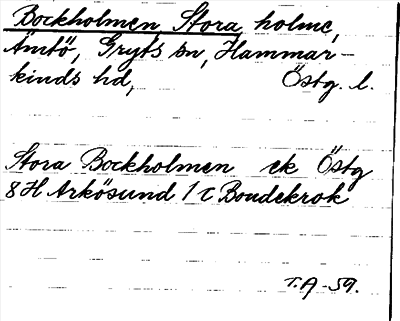 Bockholmen, Stora holme,
Ämtö, Gryts sn, Hammar-
kinds hd, Östg. l.
Stora Bockholmen ek Östg
8H Arkösund 1 c Bondekrok
T.A-59.